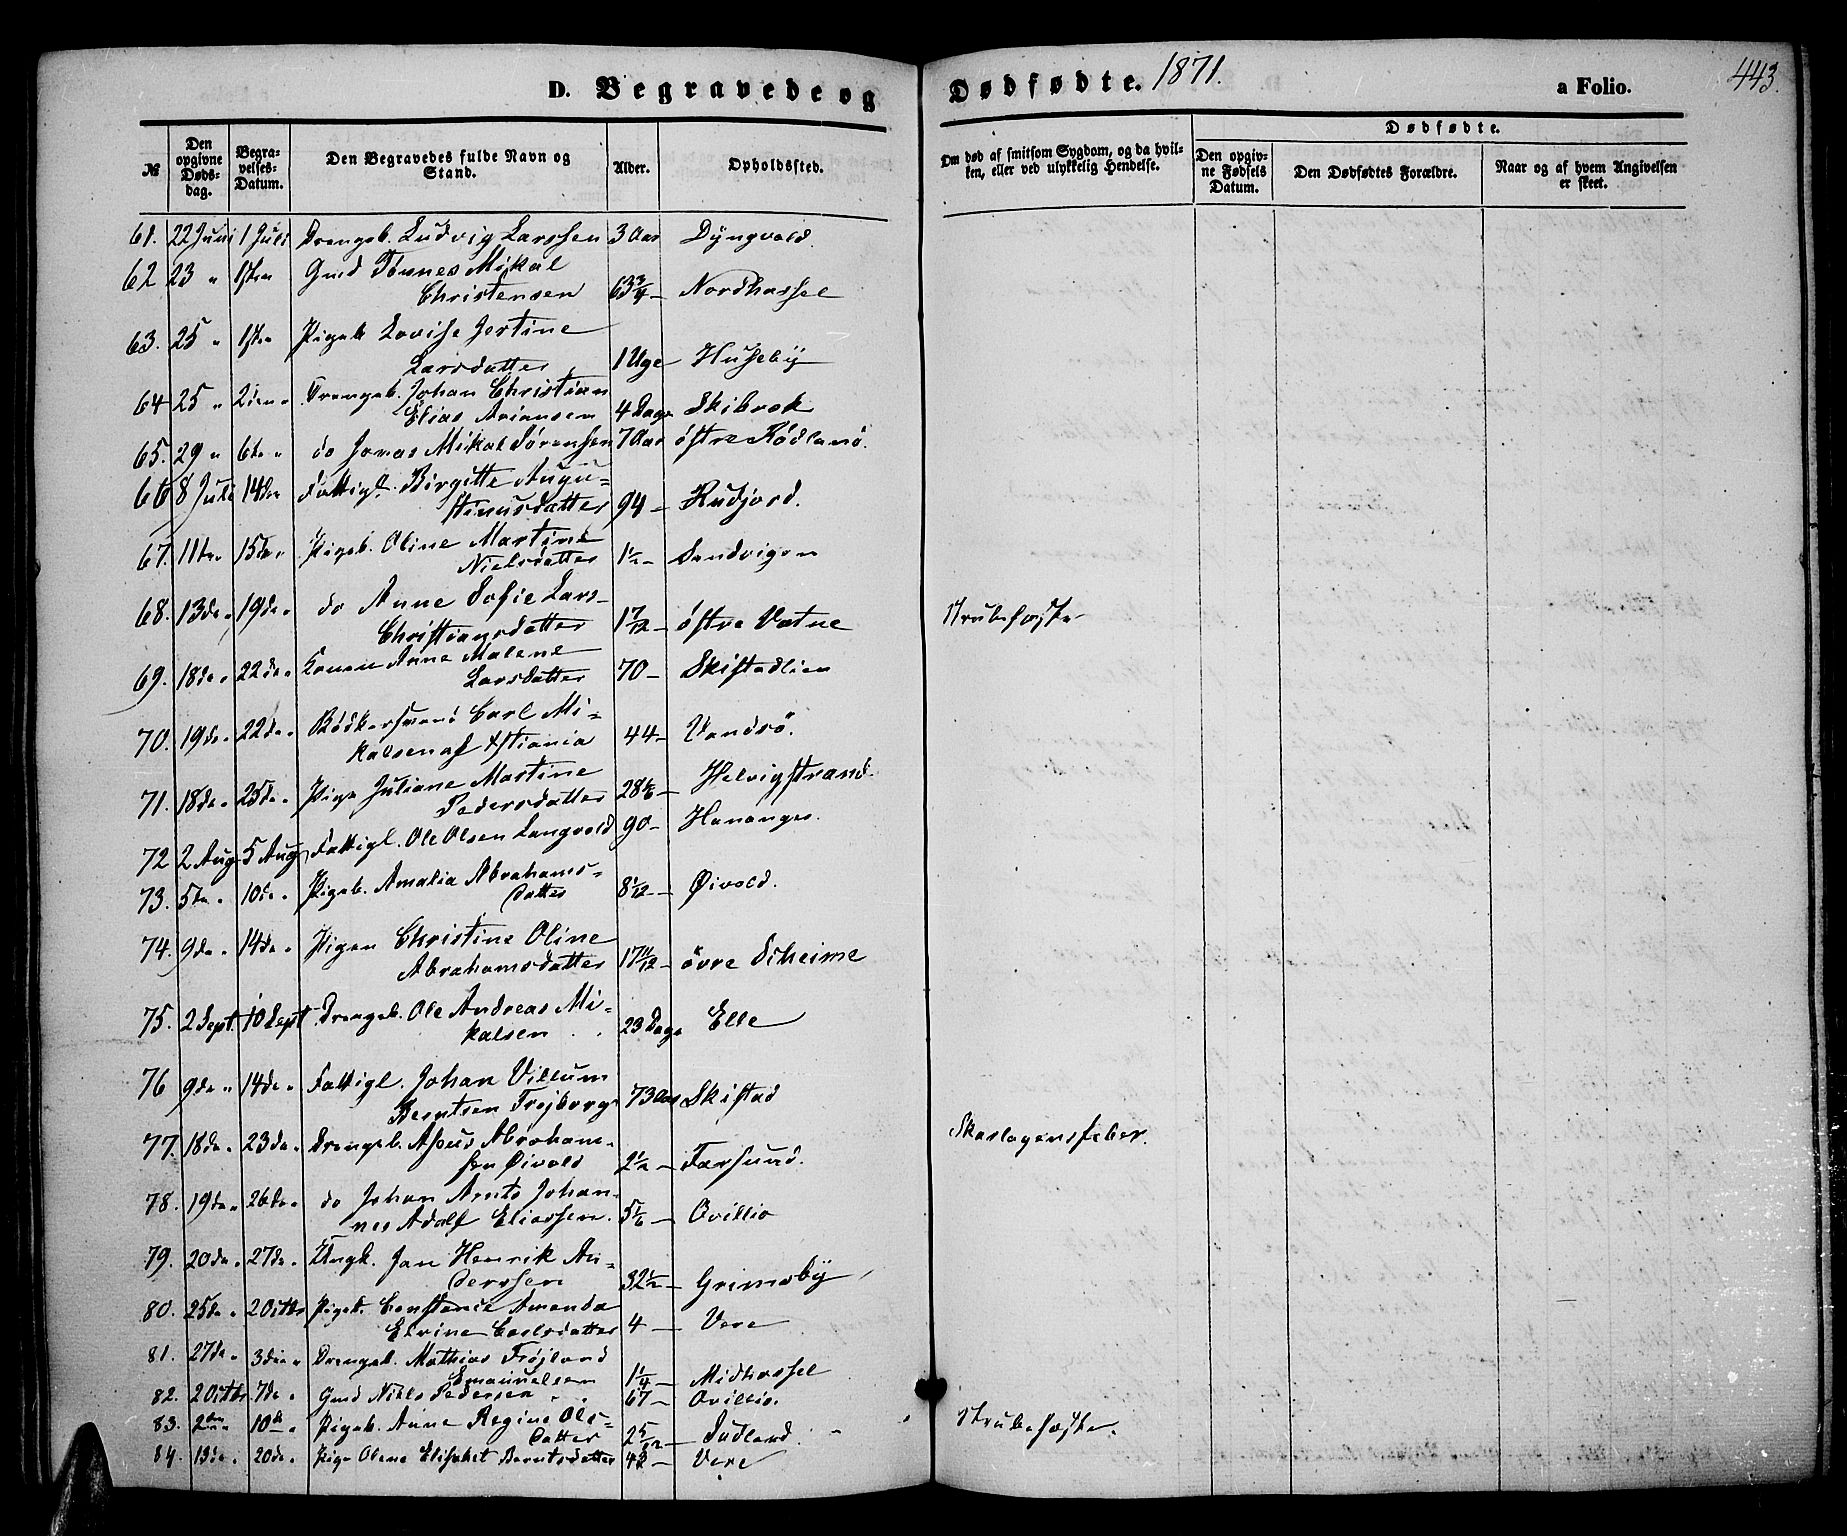 D. Begravede og Dødfødte. 1871. a Folio. 443.
№
Den opgivne Døds-dag.
Begra-velses-Datum.
Den Begravedes fulde Navn og Stand.
Alder.
Opholdssted.
Om død af smitsom Sygdom, og da hvil-ken, eller ved ulykkelig Hendelse.
Dødfødte.
Den opgiv-ne Fødsels Datum.
Den Dødfødtes Forældre.
Naar og af hvem Angivelsen er skeet.
61. 22 Juni 1 Juli Drengeb. Ludvig Larssen 3 Aar Dyngvold.
62 23 " 1ste " Gmd Tönnes Mikal
Christensen 63 3/4 - Nordhassel
63. 25 " 1ste " Pigeb. Lovise Jertine
Larsdatter 1 Uge Huseby
64 25 " 2den " Drengeb. Johan Christian
Elias Ariansen 4 Dage Skibrok
65. 29 " 6te " do Jonas Mikal Sörensen 7 Aar östre Rödland.
66 8 Juli 14de " Fattigl. Birgitte Augu=
stinusdatter 94 - Rudjord.
67. 11te " 15de " Pigeb. Oline Martine
Nielsdatter 1 1/2 - Sandvigen
68. 13de " 19de " do Anne Sofie Lars-
Christiansdatter 1 7/12 - östre Vatne Strubehoste
69. 18de " 22de " Konen Anne Malene
Larsdatter 70 - Skistadlien
70. 19de " 22de " Bödkersvend Carl Mi=
kalsen af Xstiania 44 - Vandsö.
71. 18de " 25de " Pige Juliane Martine
Pedersdatter 28 1/6 - Helvigstrand.
72 2 Aug 5 Aug Fattigl. Ole Olsen Langvold 90 - Hananger.
73. 5te " 10de " Pigeb. Amalia Abrahams-
datter 8 1/12 - Øivold.
74. 9de " 14de " Pigen Christine Oline
Abrahamsdatter 17 11/12 - övre Skeime
75. 2 Sept. 10 Sept Drengeb. Ole Andreas Mi-
kalsen 23 Dage Elle
76 9de " 14de " Fattigl. Johan Villum
Berntsen Fröjborg 73 Aar Skistad
77. 18de " 23de " Drengeb. Asseus Abraham-
sen Øivold 2 1/2 - Farsund. Skarlagensfeber.
78. 19de " 26de " do Johan Arnts Johan-
nes Adolf Eliassen. 5 1/6 - Ovillio
79. 20de " 27de " Ungk. Jan Henrik An-
derssen 32 1/2 - Grimsby
80. 25de " 2 Octbr Pigeb. Constance Amanda
Elvine Carlsdatter 4 - Vere
81. 27de " 3die " Drengeb. Mathias Tröjland
Emanuelsen 1 1/4 - Midhassel
82. 2 Octbr 7de " Gmd Niels Pedersen 67 - Ovillio.
83. 2den " 10de " Pigeb. Anne Regine Ols-
datter 2 5/12 - Sudland. Strubehoste.
84. 13de " 20de " Pige Olene Elisabet Berntsdatter 43 - Vere